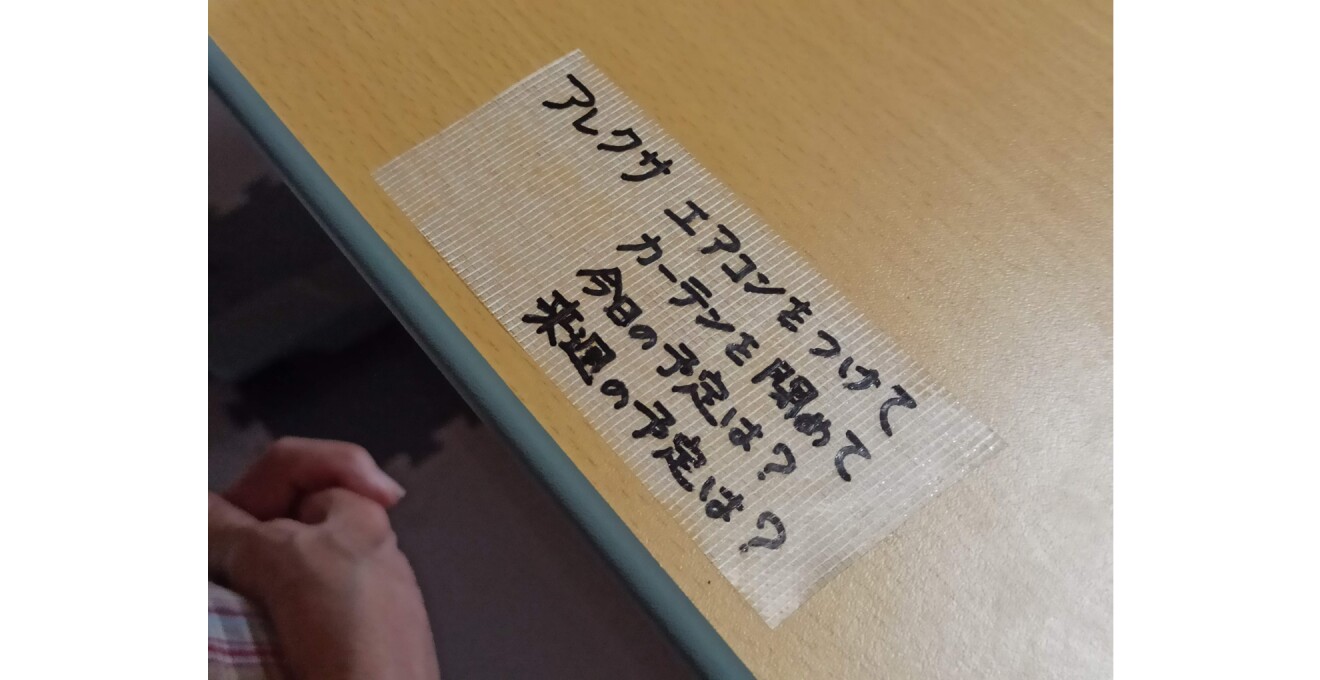 アレクサ エアコンをつけて
カーテンを閉めて
今日の予定は?
来週の予定は?